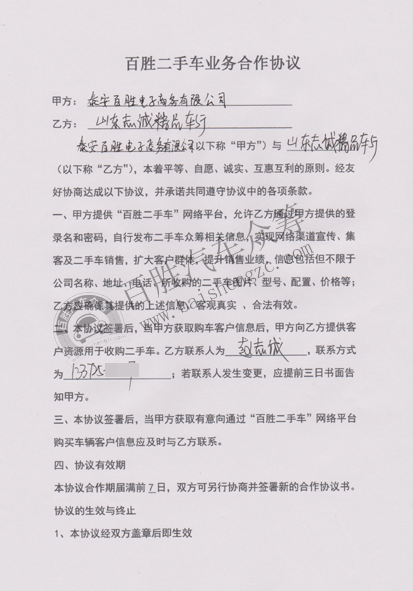 百胜二手车业务合作协议
甲方：泰安百胜电子商务有限公司
乙方：山东志诚精品车行
泰安百胜电子商务有限公司（以下称“甲方”）与 山东志诚精品车行
（以下称“乙方”），本着平等、自愿、诚实、互惠互利的原则。经友
好协商达成以下协议，并承诺共同遵守协议中的各项条款。
一、甲方提供“百胜二手车”网络平台，允许乙方通过甲方提供的登
录名和密码，自行发布二手车众筹相关信息，实现网络渠道宣传、集
客及二手车销售，扩大客户群体，提升销售业绩，信息包括但不限于
公司名称、地址、电话、所收购的二手车图片、型号、配置、价格等；
乙方应确保其提供的上述信息、客观真实 、合法有效。
二、本协议签署后，当甲方获取购车客户信息后，甲方向乙方提供客
户资源用于收购二手车。乙方联系人为 赵志诚 ，联系方式
为 ；若联系人发生变更，应提前三日书面告
知甲方。
三、本协议签署后，当甲方获取有意向通过“百胜二手车”网络平台
购买车辆客户信息应及时与乙方联系。
四、协议有效期
本协议合作期届满前 7 日，双方可另行协商并签署新的合作协议书。
协议的生效与终止
1、本协议经双方盖章后即生效
百胜汽车众筹
www.baishengzc.com